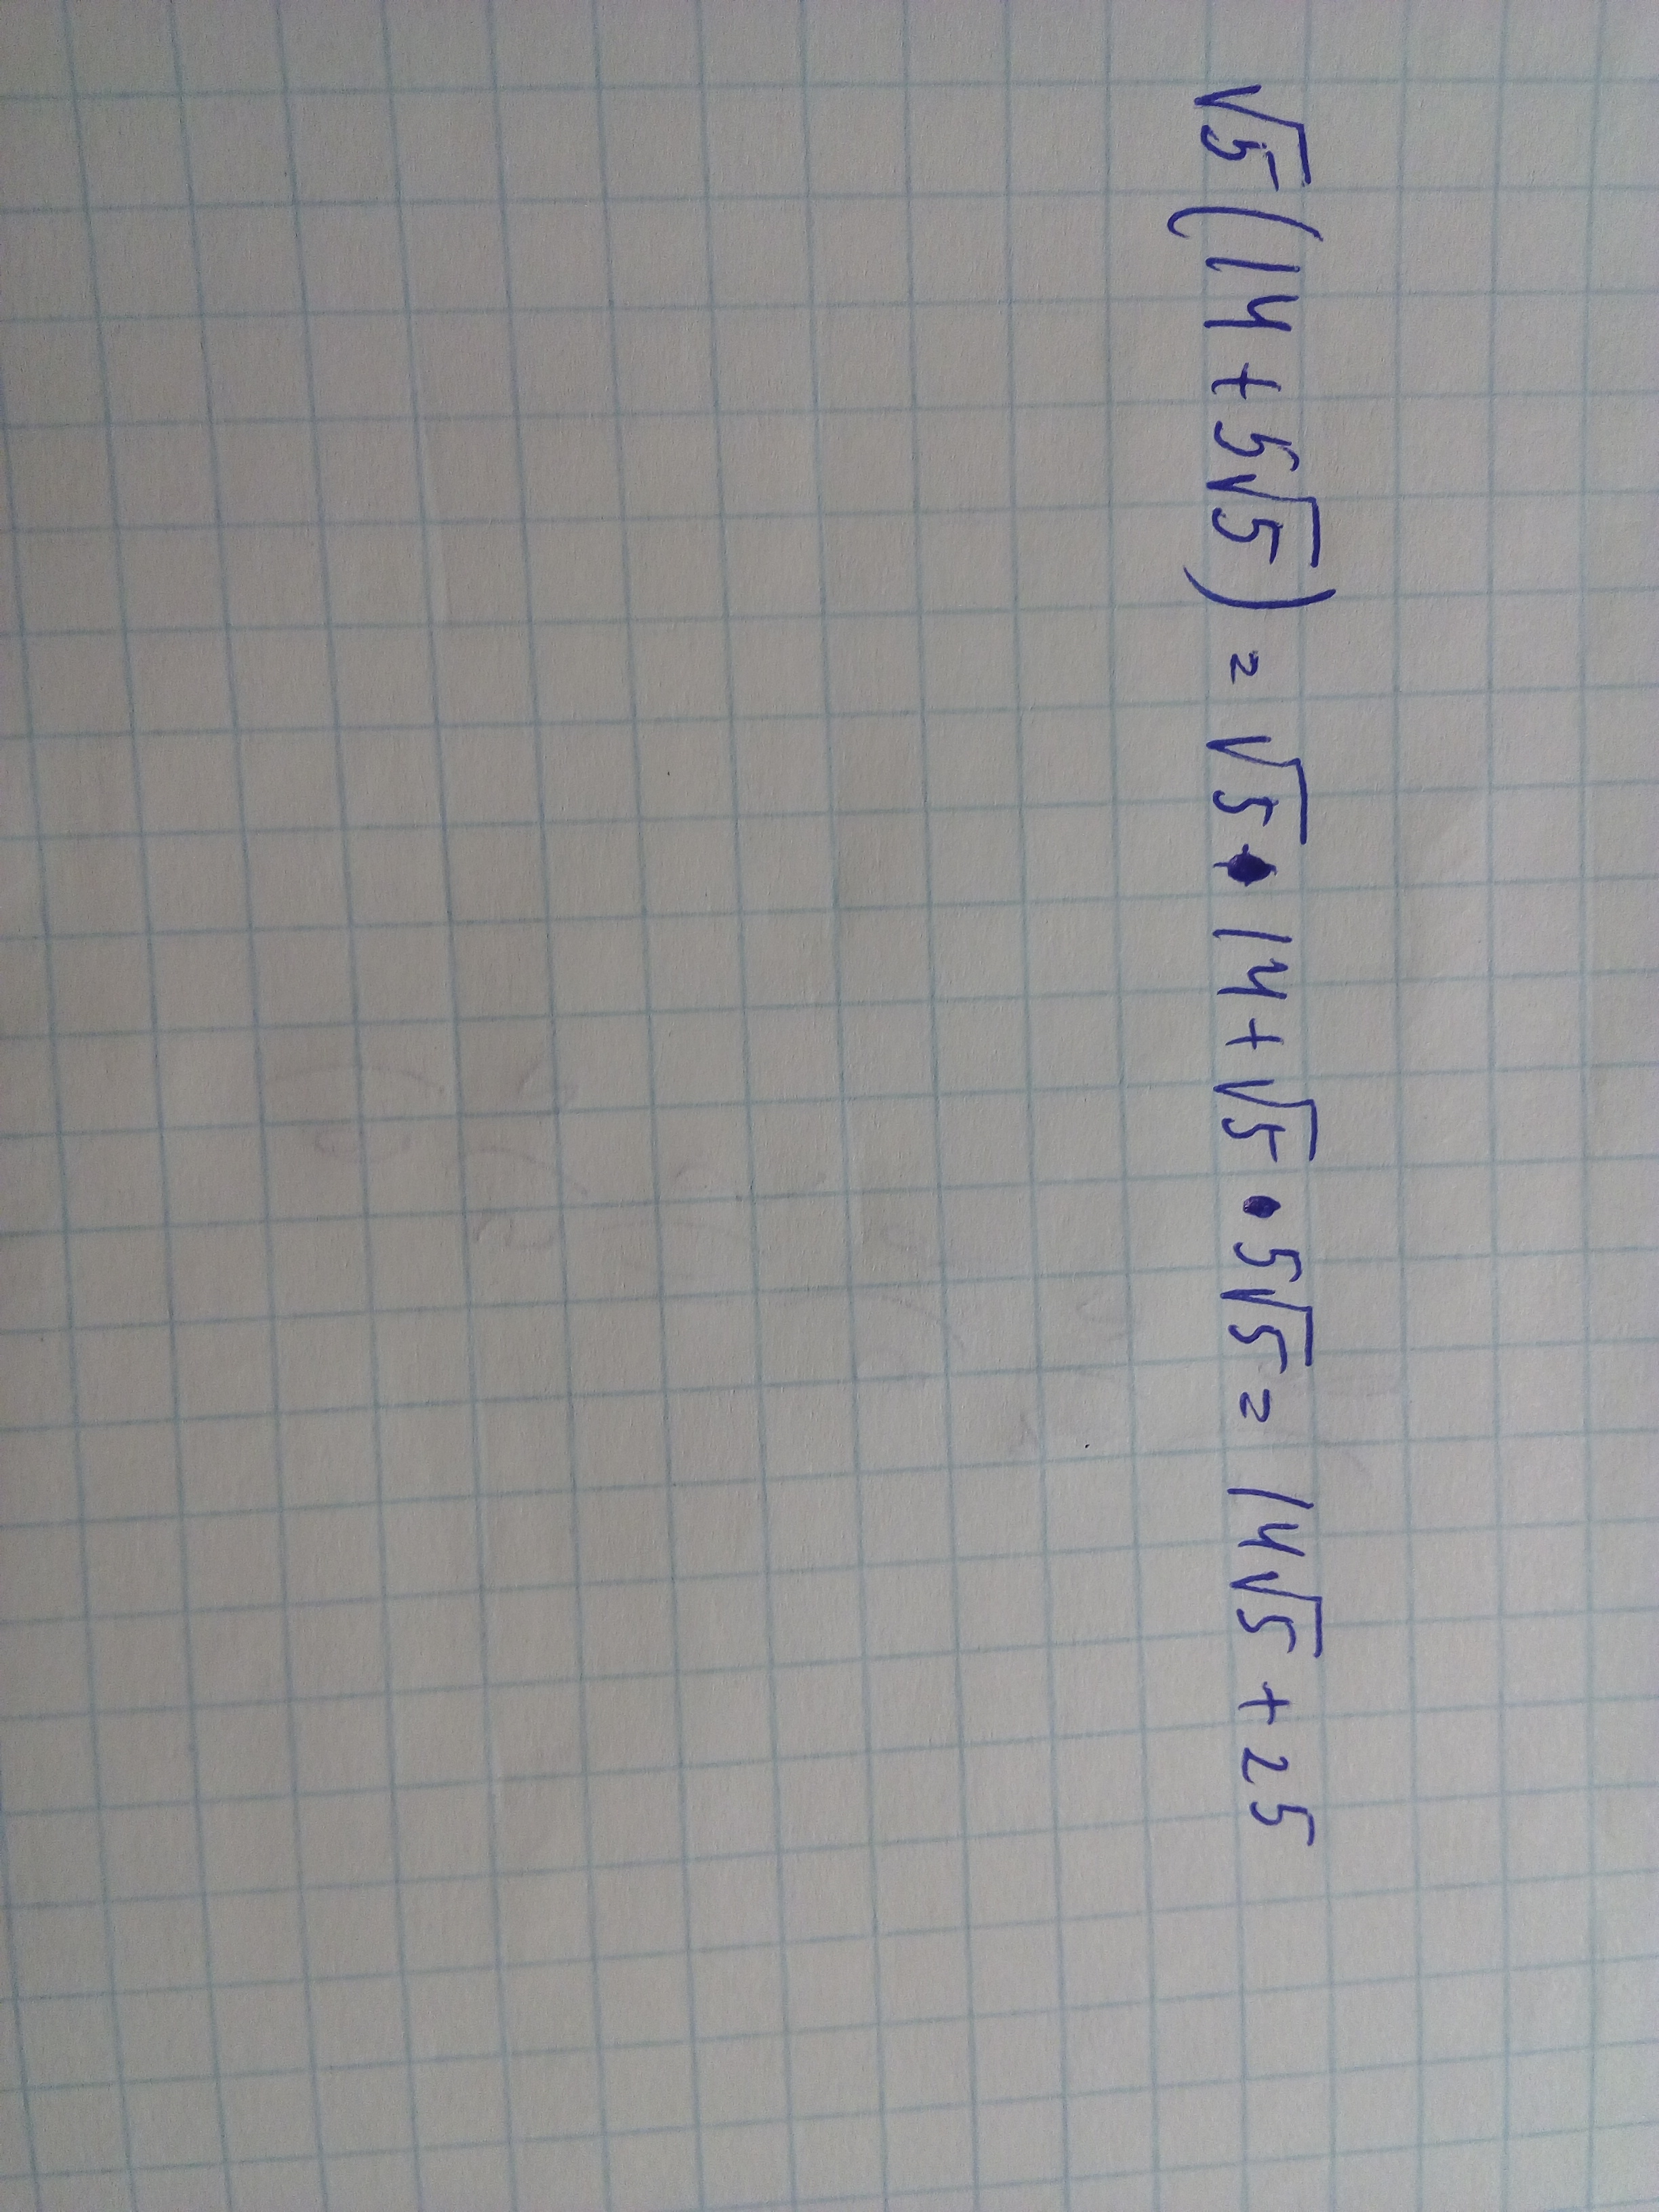 √5(14+5√5) = √5 • 14+√5 • 5√5 = 14√5 + 25